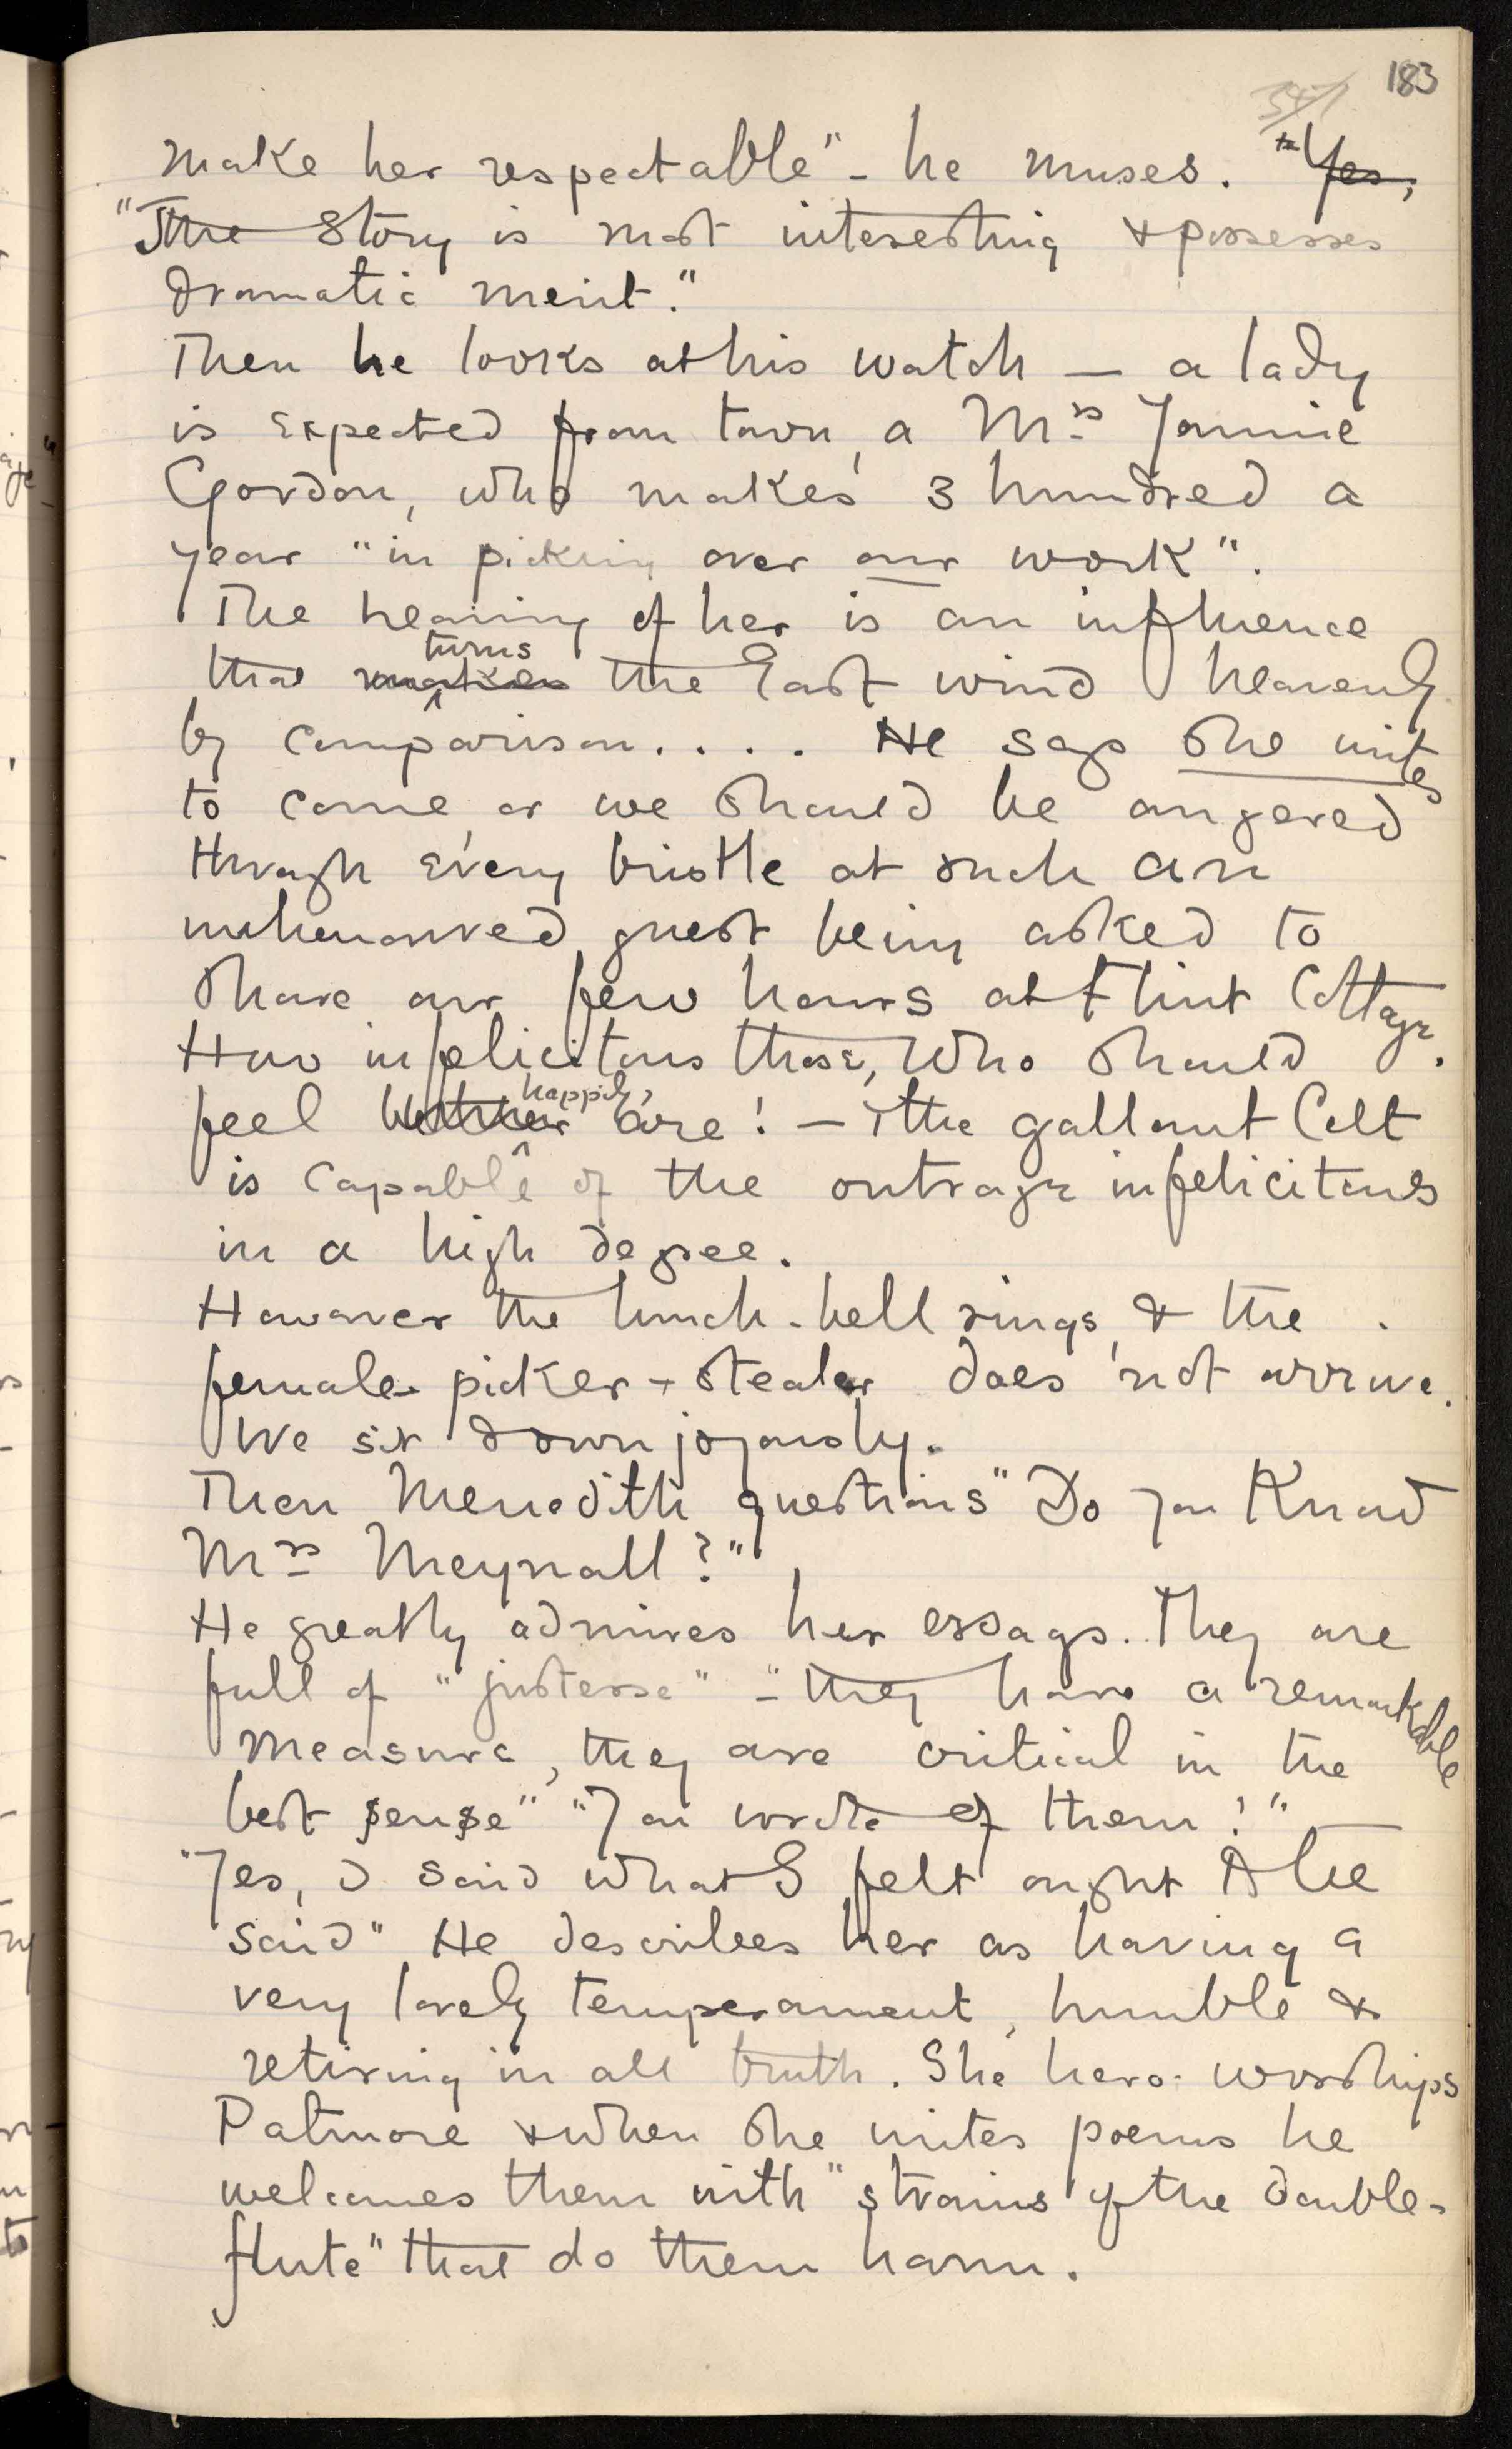 183
347
make her respectable" - he muses. "Yes,
"The Story is most interesting & possesses
dramatic merit."
Then he looks at his watch — a lady
is expected from town, a Mrs Jannie
Gordon, who makes 3 hundred a
year "in picking over our work".
The nearing of her is an influence
turns
that makes the East wind heavenly
by comparison. . . . He says she writes
to come, or we should be angered
through every bristle at such an
unhonoured guest being asked to
share our few hours at Flint Cottage.
How infelicitous those, who should
happily,
feel are! — if the gallant Celt
is capable of the outrage infelicitous
in a high degree.
However the lunch-bell rings, & the
female picker & stealer does not arrive.
We sit down joyously.
Then Meredith questions "Do you Know
Mrs Meynall?"
He greatly admires her essays. They are
full of "justesse" - "they have a remarkable
measure, they are critical in the
best sense" "You wrote of them!"
"Yes, I said what I felt ought to be
said" He describes her as having a
very lovely temperament, humble &
retiring in all truth. She hero-worships
Patmore & when she writes poems he
welcomes them with "strains of the double-
flute" that do them harm.